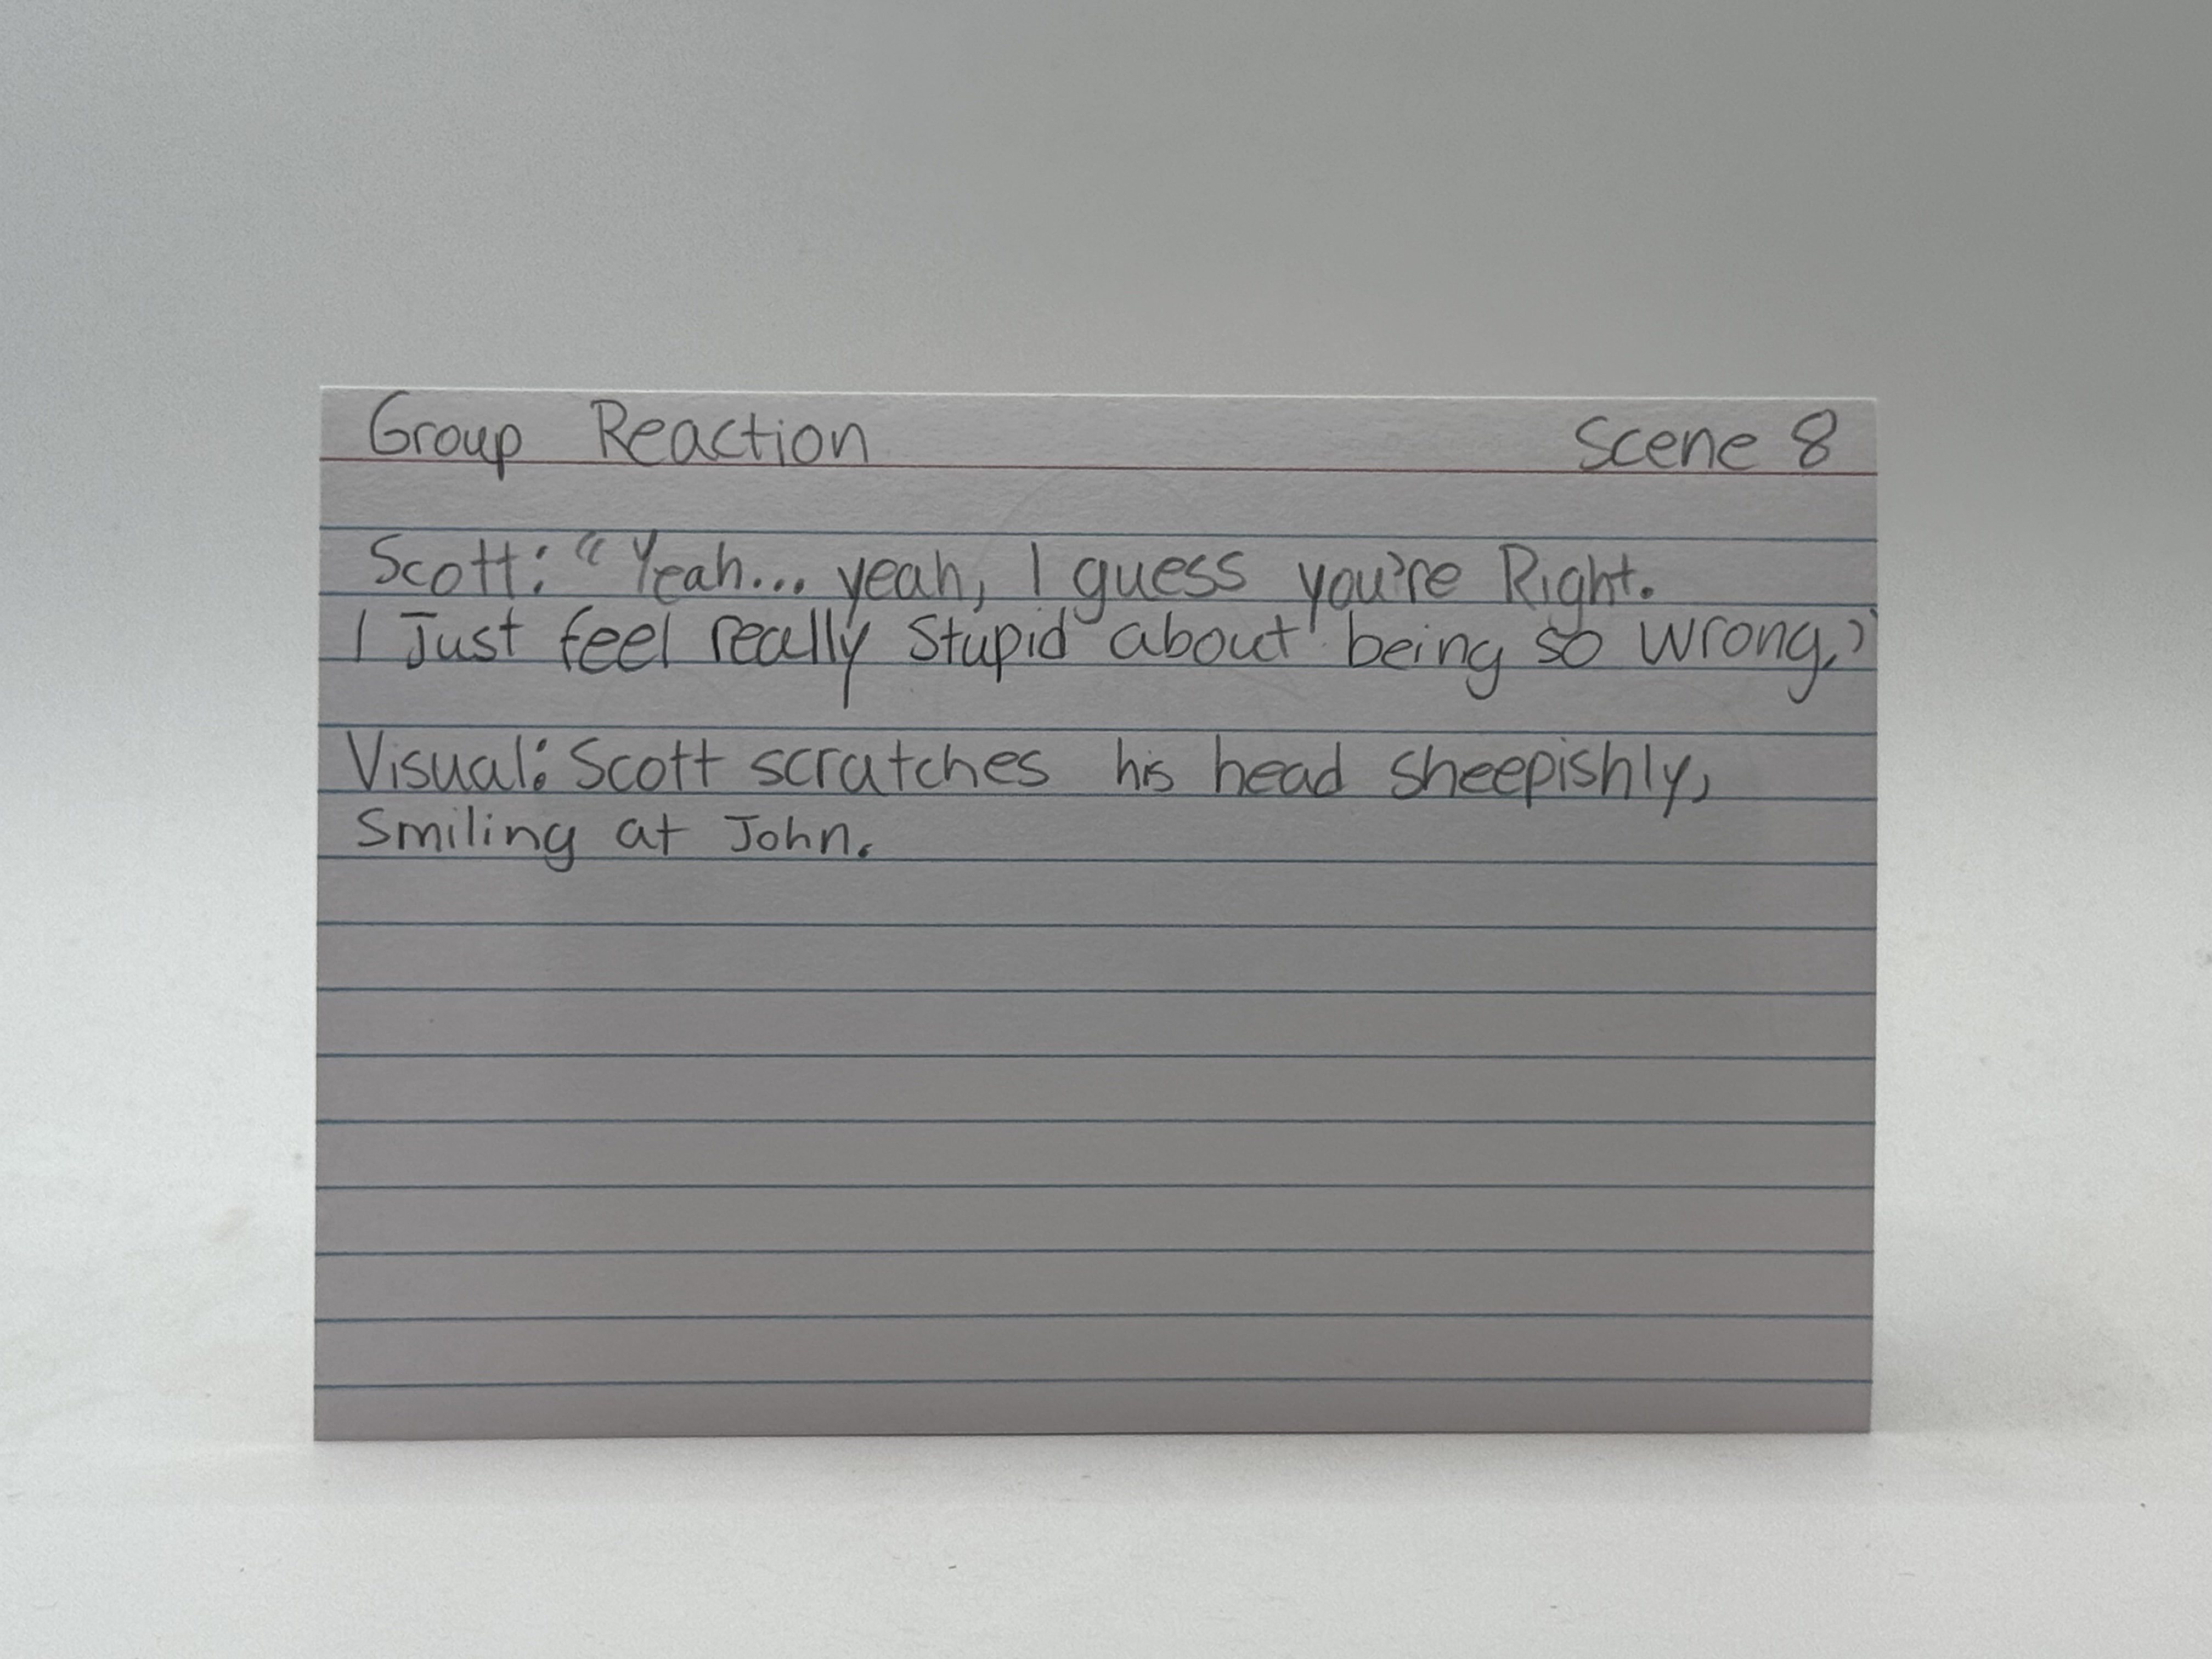 Group Reaction Scene 8
Scott: "Yeah... yeah, I guess you're Right.
I Just feel really Stupid about being so wrong."
Visual: Scott scratches his head sheepishly,
Smiling at John.